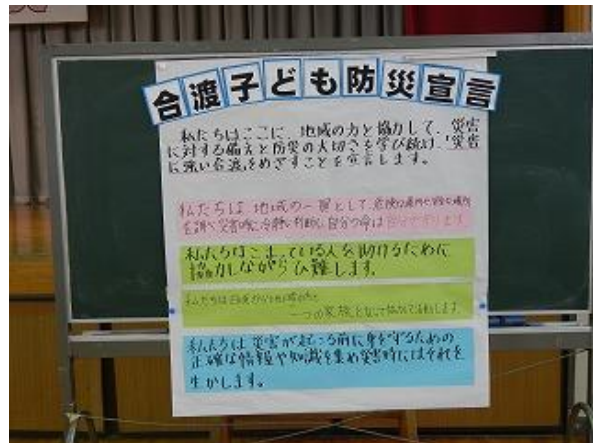 合渡子ども防災宣言
私たちはここに、地域の方と協力して、災害
に対する備えと防災の大切さを学び続け、「災害
に強い合渡」をめざすことを宣言します。
私たちは、地域の一員として、危険な場所や安全な場所
を調べ災害時に冷静に判断し、自分の命は自分で守ります。
私たちはこまっている人を助けるために
協力しながらひ難します。
私たちは
一つの家族となって協力して活動します。
私たちは災害が起こる前に身を守るための
正確な情報や知識を集め災害時にはそれを
生かします。